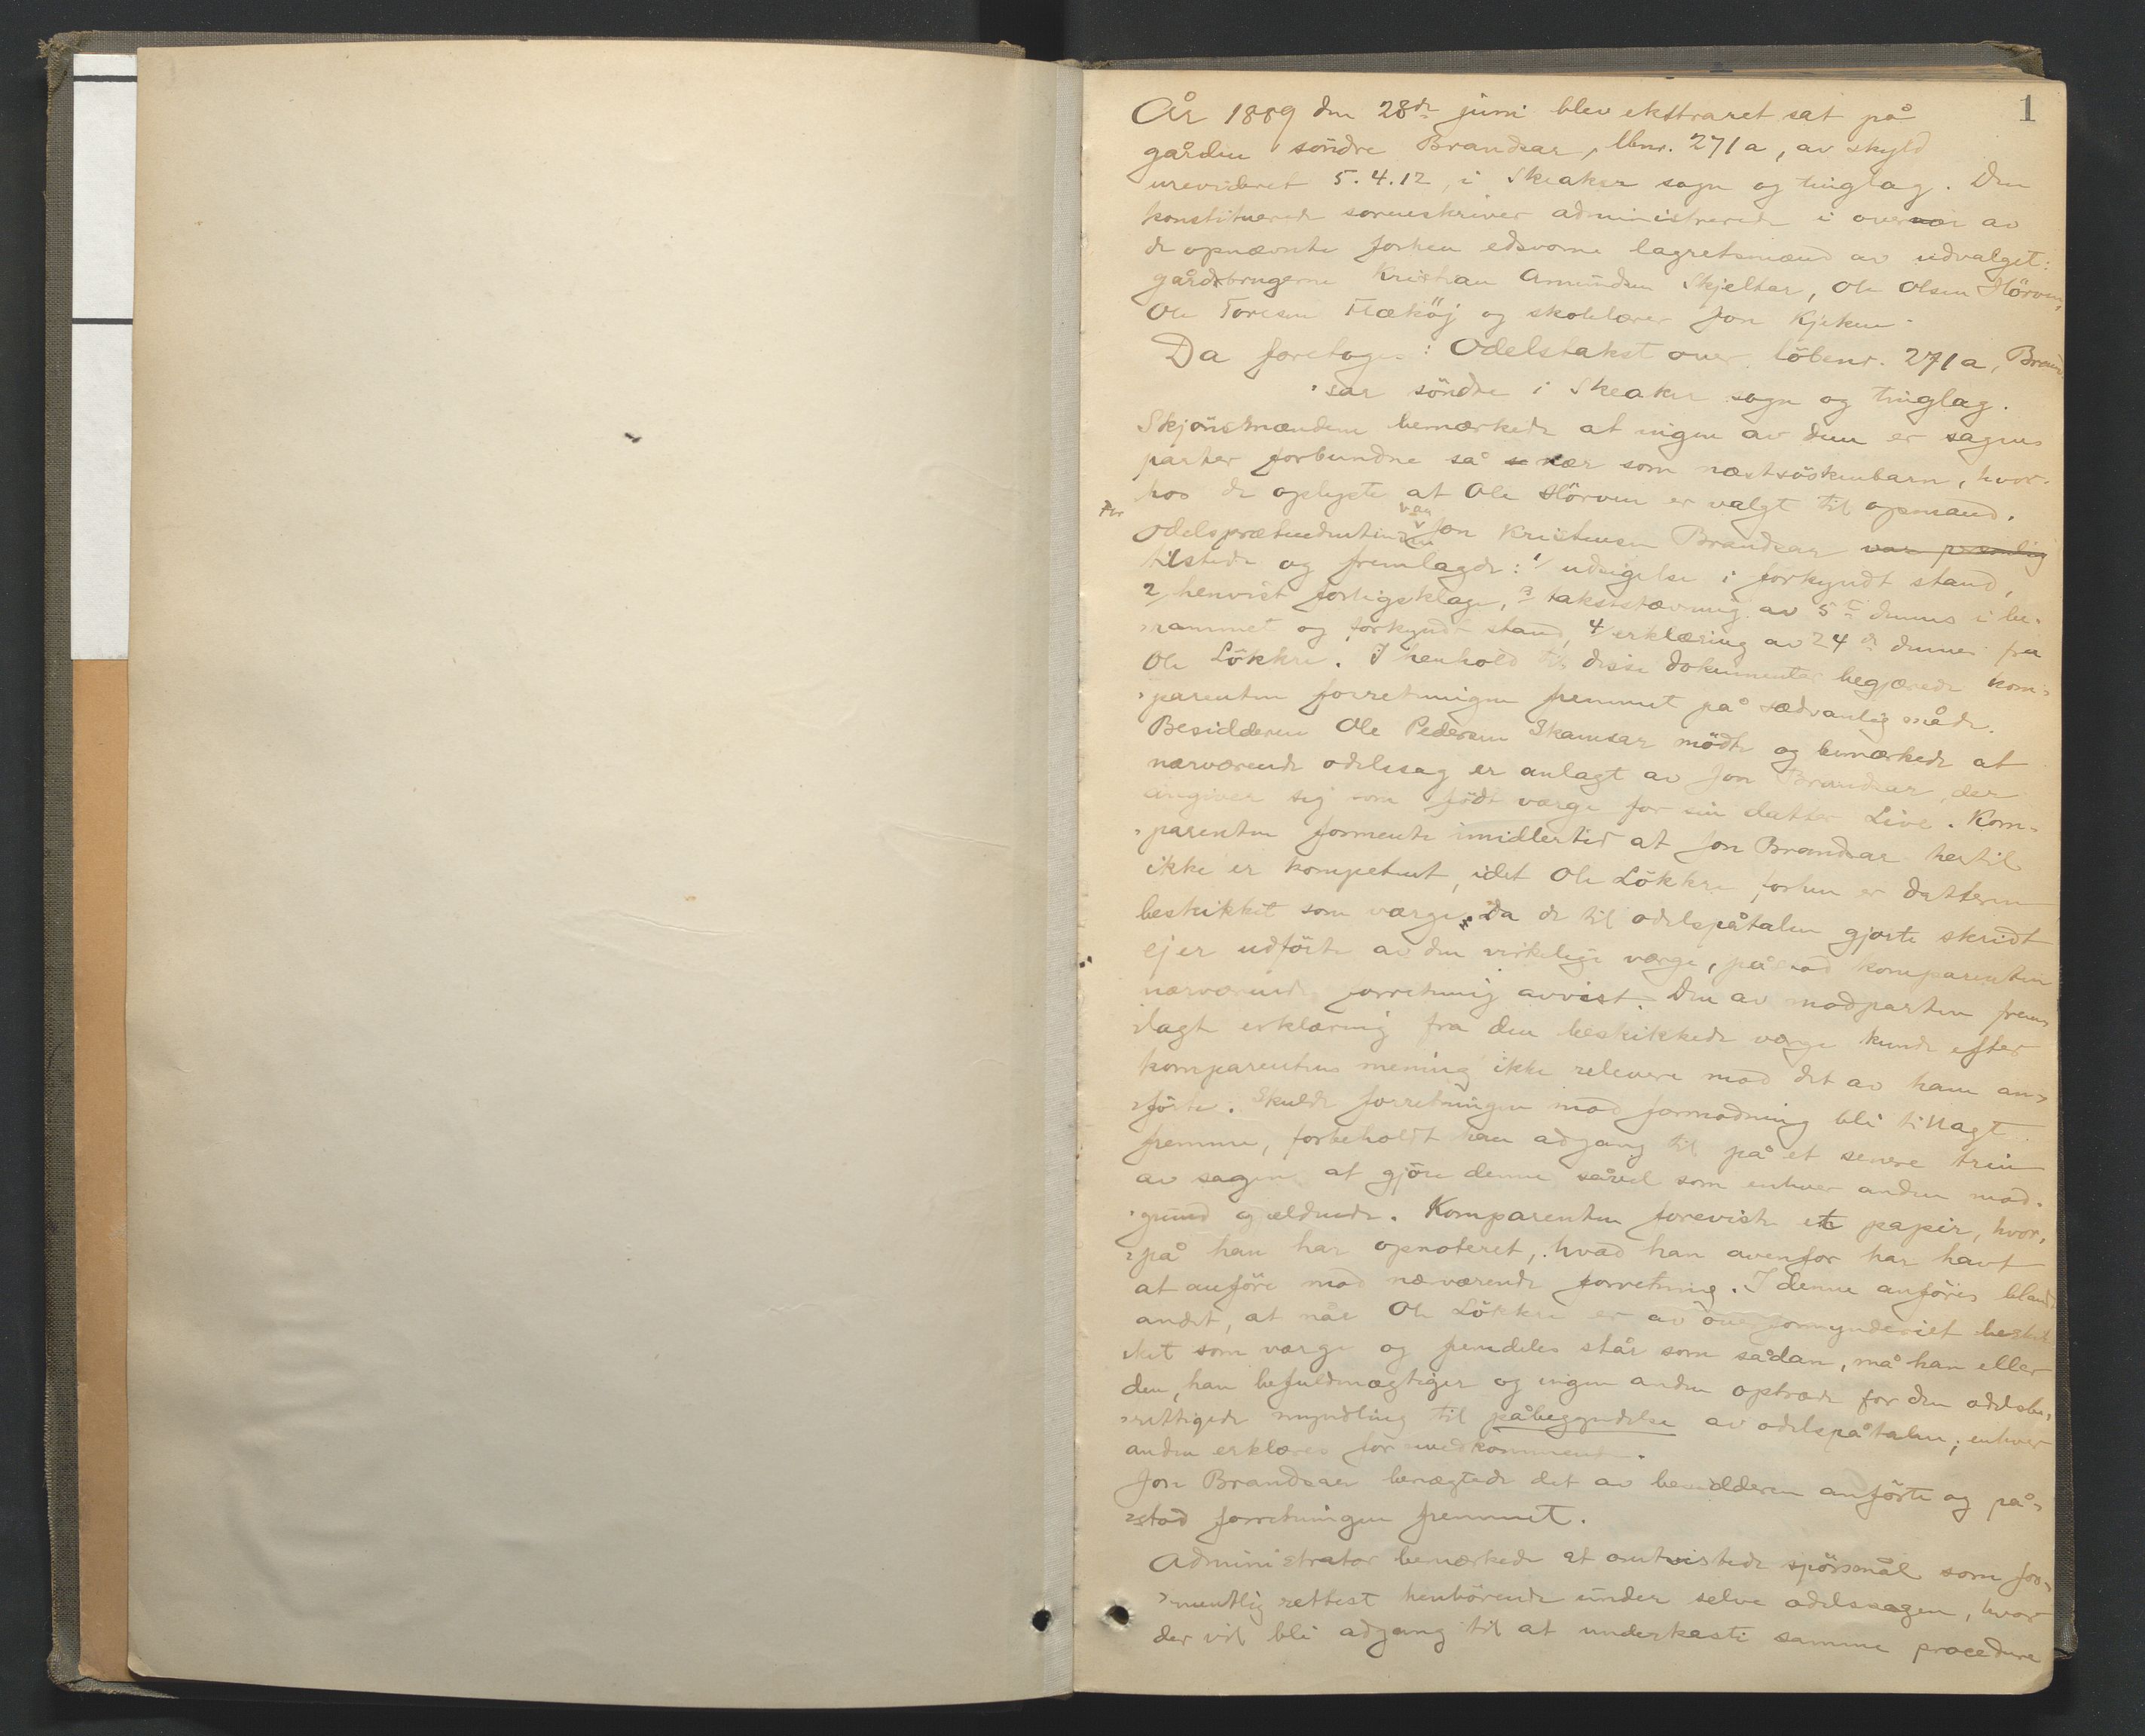 1
År 1889 den 28de juni blev ekstraret sat på
gården söndre Brandsar, lbnr. 271a, av skyld
urevideret 5.4.12, i Skeaker sogn og tinglag. Den
konstituerede sorenskriver administrerede i overvær av
de opnævnte forhen edsvorne lagretsmænd av udvalget:
gårdbrugerne Kristian Amundsen Skjelkar, Ole Olsen Hörven,
Ole Toresen Flæköj og skolelærer Jon Kjeken.
Da foretoges: Odelstakst over löbenr. 271a, Brand-
sar söndre i Skeaker sogn og tinglag.
Skjönsmændene bemærkede at ingen av dem er sagens
parter forbundne så nær som næstsöskenbarn, hvor-
hos de oplyste at Ole Hörven er valgt til opmand.
For odelsprætendentinden var Jon Kristensen Brandsar var personlig
tilstede og fremlagde: 1/ udsigelse i forkyndt stand,
2/ henvist forligsklage, 3/ takststævning av 5te dennes i be-
rammet og forkyndt stand, 4/ erklæring av 24de dennes fra
Ole Lökkre. I henhold til disse dokumenter begjærede kom-
parenten forretningen fremmet på sædvanlig måde.
Besidderen Ole Pedersen Skamsar mödte og bemærkede at
nærværende odelssag er anlagt av Jon Brandsar, der
angiver sig som födt værge for sin datter Live. Kom-
parenten formente imidlertid at Jon Brandsar hertil
ikke er kompetent, idet Ole Lökkre forhen er datteren
beskikket som værge. Da de til odelspåtalen gjorte skridt
ej er udförte av den virkelige værge, påstod komparenten
nærværende forretning avvist. Den av modparten frem-
lagte erklæring fra den beskikkede værge kunde efter
komparentens mening ikke relevere mod det av ham an-
förte. Skulde forretningen mod formodning bli tillagt
fremme, forbeholdt han adgang til på et senere trin
av sagen at gjöre denne såvel som enhver anden mod-
grund gjældende. Komparenten foreviste et papir, hvor-
på han har opnoteret, hvad han ovenfor har havt
at anföre mod nærværende forretning. I denne anföres blandt
andet, at når Ole Lökkre er av overformynderiet beskik-
ket som værge og fremdeles står som sådan, må han eller
den, han befuldmægtiger og ingen anden optræde for den odelsbe-
rettigede myndling til påbegyndelse av odelspåtalen; enhver
anden erklæres for uvedkommende.
Jon Brandsar benægtede det av besidderen anförte og på-
stod forretningen fremmet.
Administrator bemærkede at omtvistede spörsmål som for-
mentlig rettest henhörende under selve odelssagen, hvor
der vil bli adgang til at underkaste samme procedure